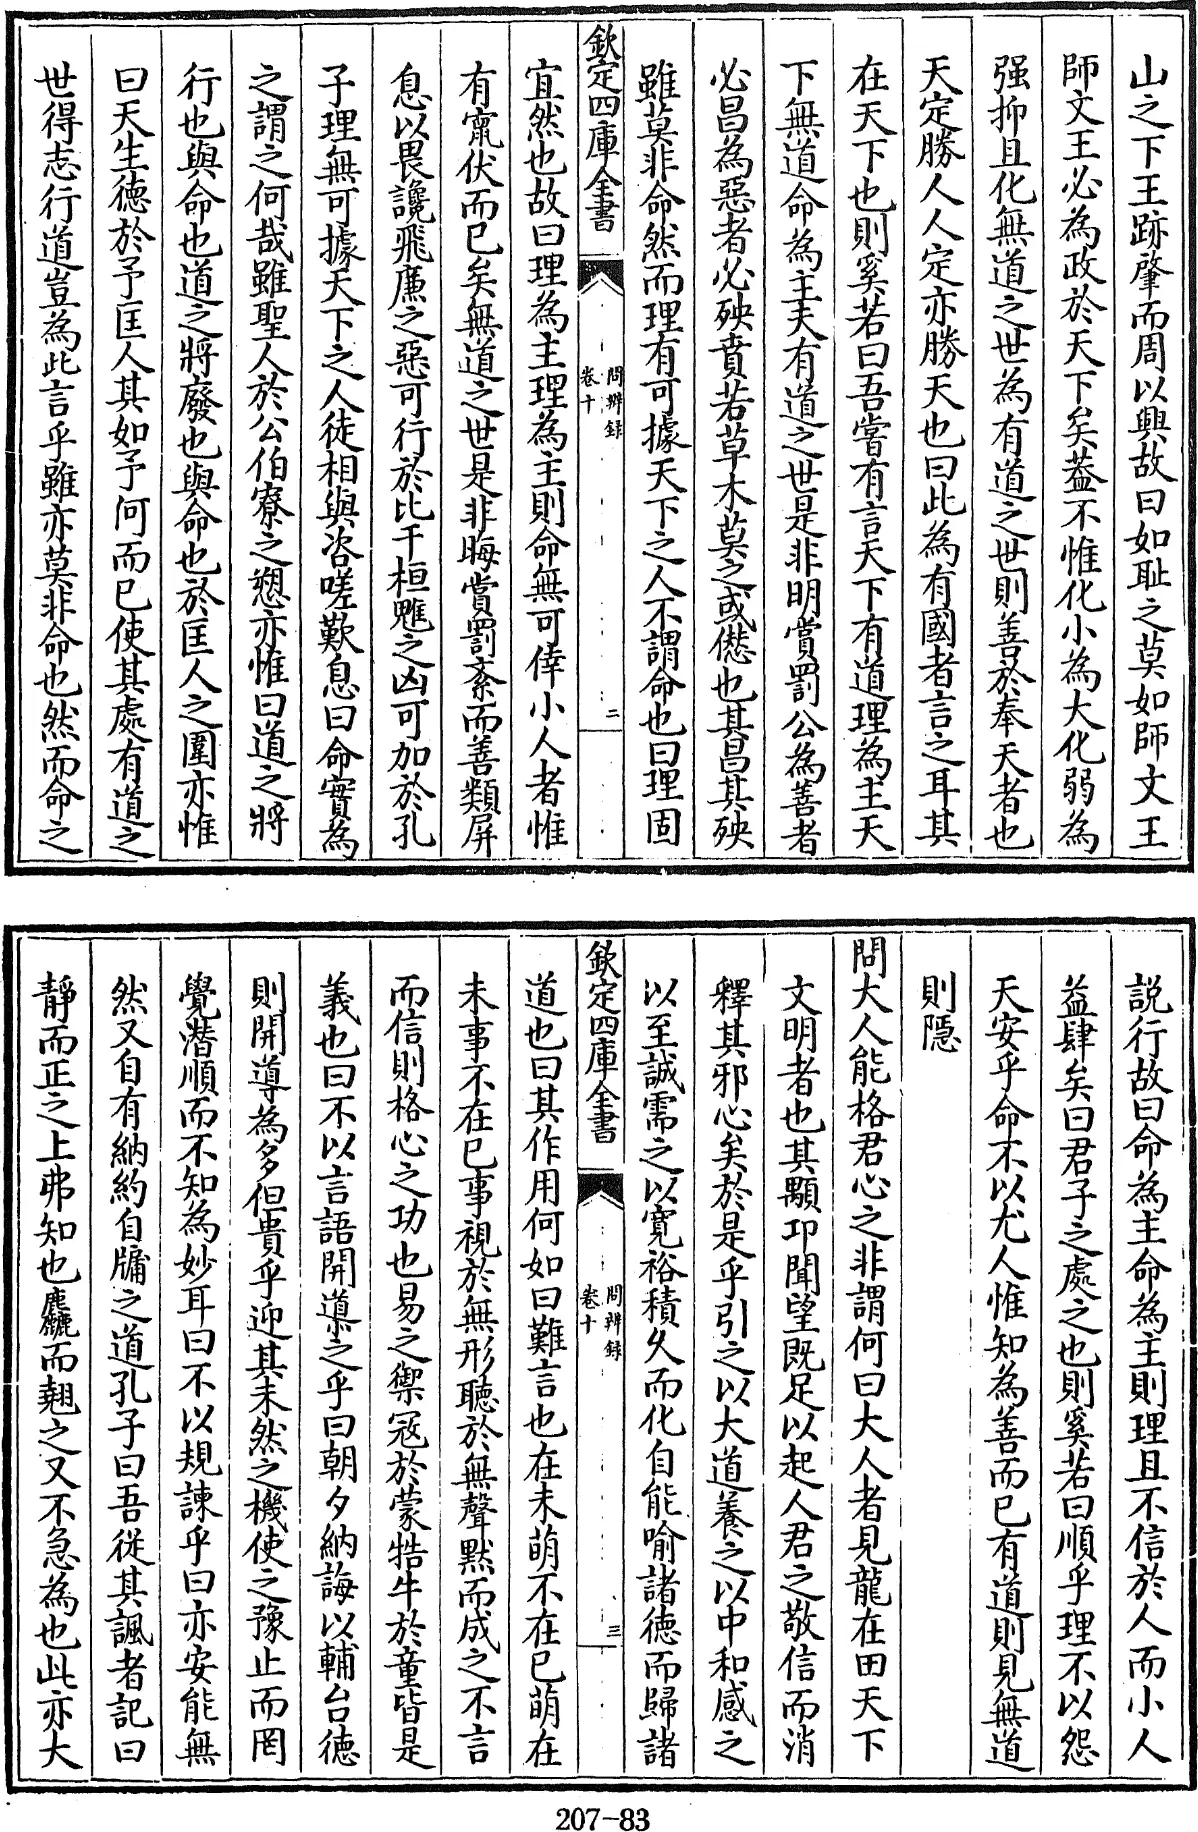 山之下王跡肇而周以興故曰如耻之莫如師文王
師文王必為政於天下矣葢不惟化小為大化弱為
强抑且化無道之世為有道之世則善於奉天者也
天定勝人人定亦勝天也曰此為有國者言之耳其
在天下也則奚若曰吾嘗有言天下有道理為主天
下無道命為主夫有道之世是非明賞罰公為善者
必昌為惡者必殃賁若草木莫之或僭也其昌其殃
雖莫非命然而理有可據天下之人不謂命也曰理固
欽定四庫全書
問辨録
卷十
二
宜然也故曰理為主理為主則命無可倖小人者惟
有竄伏而已矣無道之世是非晦賞罰紊而善類屏
息以畏讒飛廉之惡可行於比干桓魋之凶可加於孔
子理無可據天下之人徒相與咨嗟歎息曰命實為
之謂之何哉雖聖人於公伯寮之愬亦惟曰道之將
行也與命也道之將廢也與命也於匡人之圍亦惟
曰天生德於予匡人其如予何而已使其處有道之
世得志行道豈為此言乎雖亦莫非命也然而命之
説行故曰命為主命為主則理且不信於人而小人
益肆矣曰君子之處之也則奚若曰順乎理不以怨
天安乎命不以尤人惟知為善而已有道則見無道
則隱
問大人能格君心之非謂何曰大人者見龍在田天下
文明者也其顒卬聞望既足以起人君之敬信而消
釋其邪心矣於是乎引之以大道養之以中和感之
以至誠需之以寛裕積久而化自能喻諸德而歸諸
欽定四庫全書
問辨録
卷十
三
道也曰其作用何如曰難言也在未萌不在已萌在
未事不在已事視於無形聽於無聲黙而成之不言
而信則格心之功也易之禦冦於蒙牿牛於童皆是
義也曰不以言語開導之乎曰朝夕納誨以輔台德
則開導為多但貴乎迎其未然之機使之豫止而罔
覺潜順而不知為妙耳曰不以規諫乎曰亦安能無
然又自有納約自牖之道孔子曰吾從其諷者記曰
静而正之上弗知也麤而翹之又不急為也此亦大
207-83